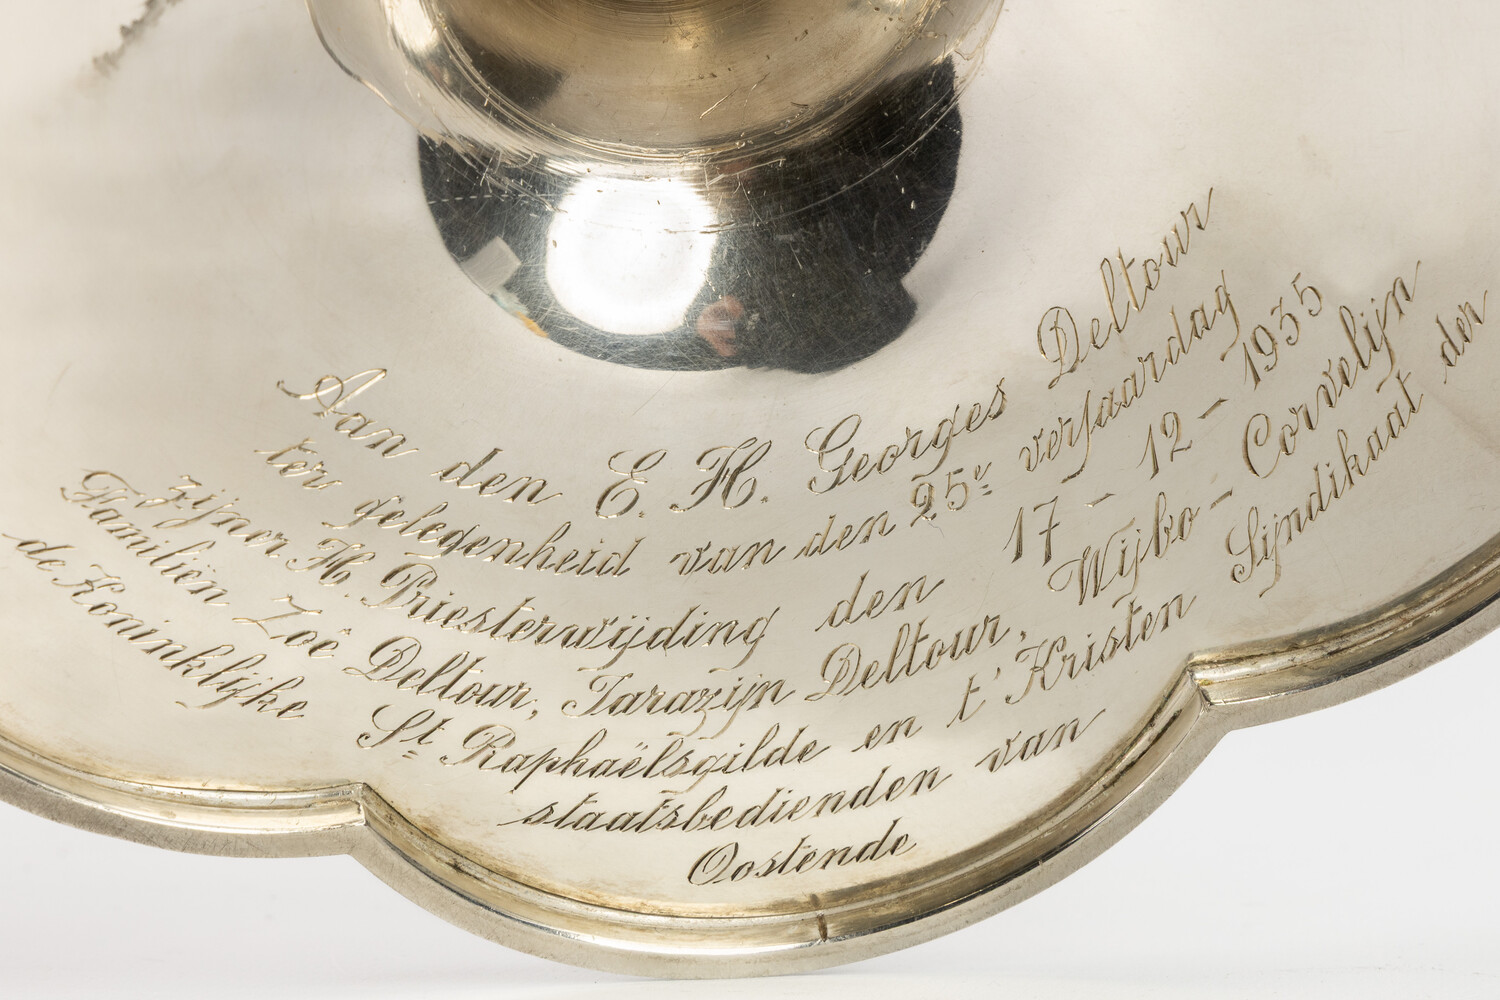 Aan den E. H. Georges Deltour
ter gelegenheid van den 25e verjaardag
zijner H. Priesterwijding den 17-12-1935
Familiën Zoë Deltour, Tarazijn Deltour, Wijbo-Corvelijn
de Koninklijke St Raphaëlsgilde en t' Kristen Sijndikaat der
staatsbedienden van
Oostende